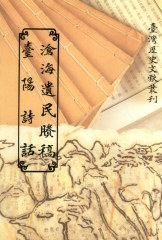 臺灣歷史文獻叢刊
滄海遺民賸稿
臺陽詩話